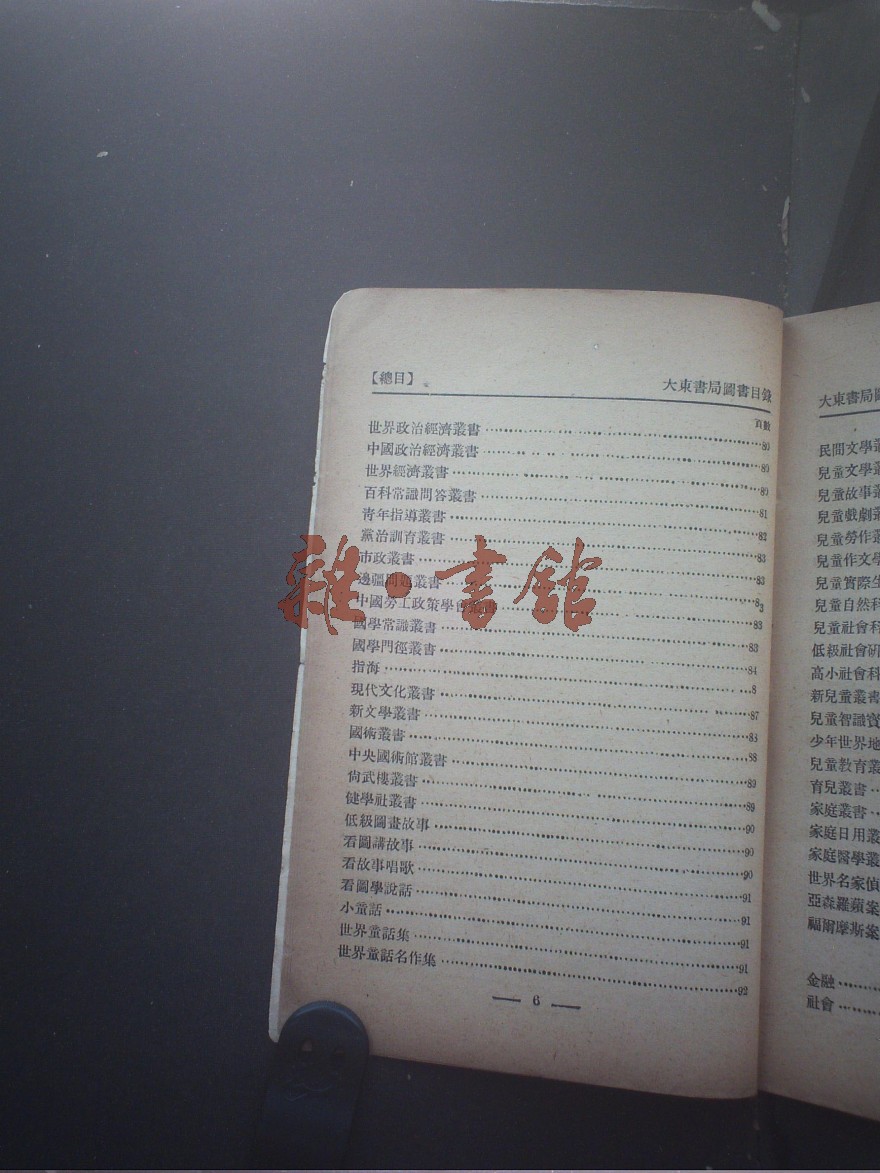 【總目】
大東書局圖書目錄
頁數
世界政治經濟叢書 80
中國政治經濟叢書 80
世界經濟叢書 80
百科常識問答叢書 81
青年指導叢書 82
黨治訓育叢書 83
市政叢書 83
邊疆問題叢書 83
中國勞工政策學會叢書 83
國學常識叢書 83
國學門徑叢書 84
指海 8
現代文化叢書 87
新文學叢書 88
國術叢書 88
中央國術館叢書 89
尙武樓叢書 89
健學社叢書 90
低級圖畫故事 90
看圖講故事 90
看故事唱歌 91
看圖學說話 91
小童話 91
世界童話集 91
世界童話名作集 92
6
雜·書館
大東書局
民間文學
兒童文學
兒童故事
兒童戲劇
兒童勞作
兒童作文
兒童實際生
兒童自然科
兒童社會科
低級社會研
高小社會科
新兒童叢書
兒童智識寶
少年世界地
兒童教育叢
育兒叢書
家庭叢書
家庭日用叢
家庭醫學叢
世界名家偵
亞森羅蘋案
福爾摩斯案
金融
社會